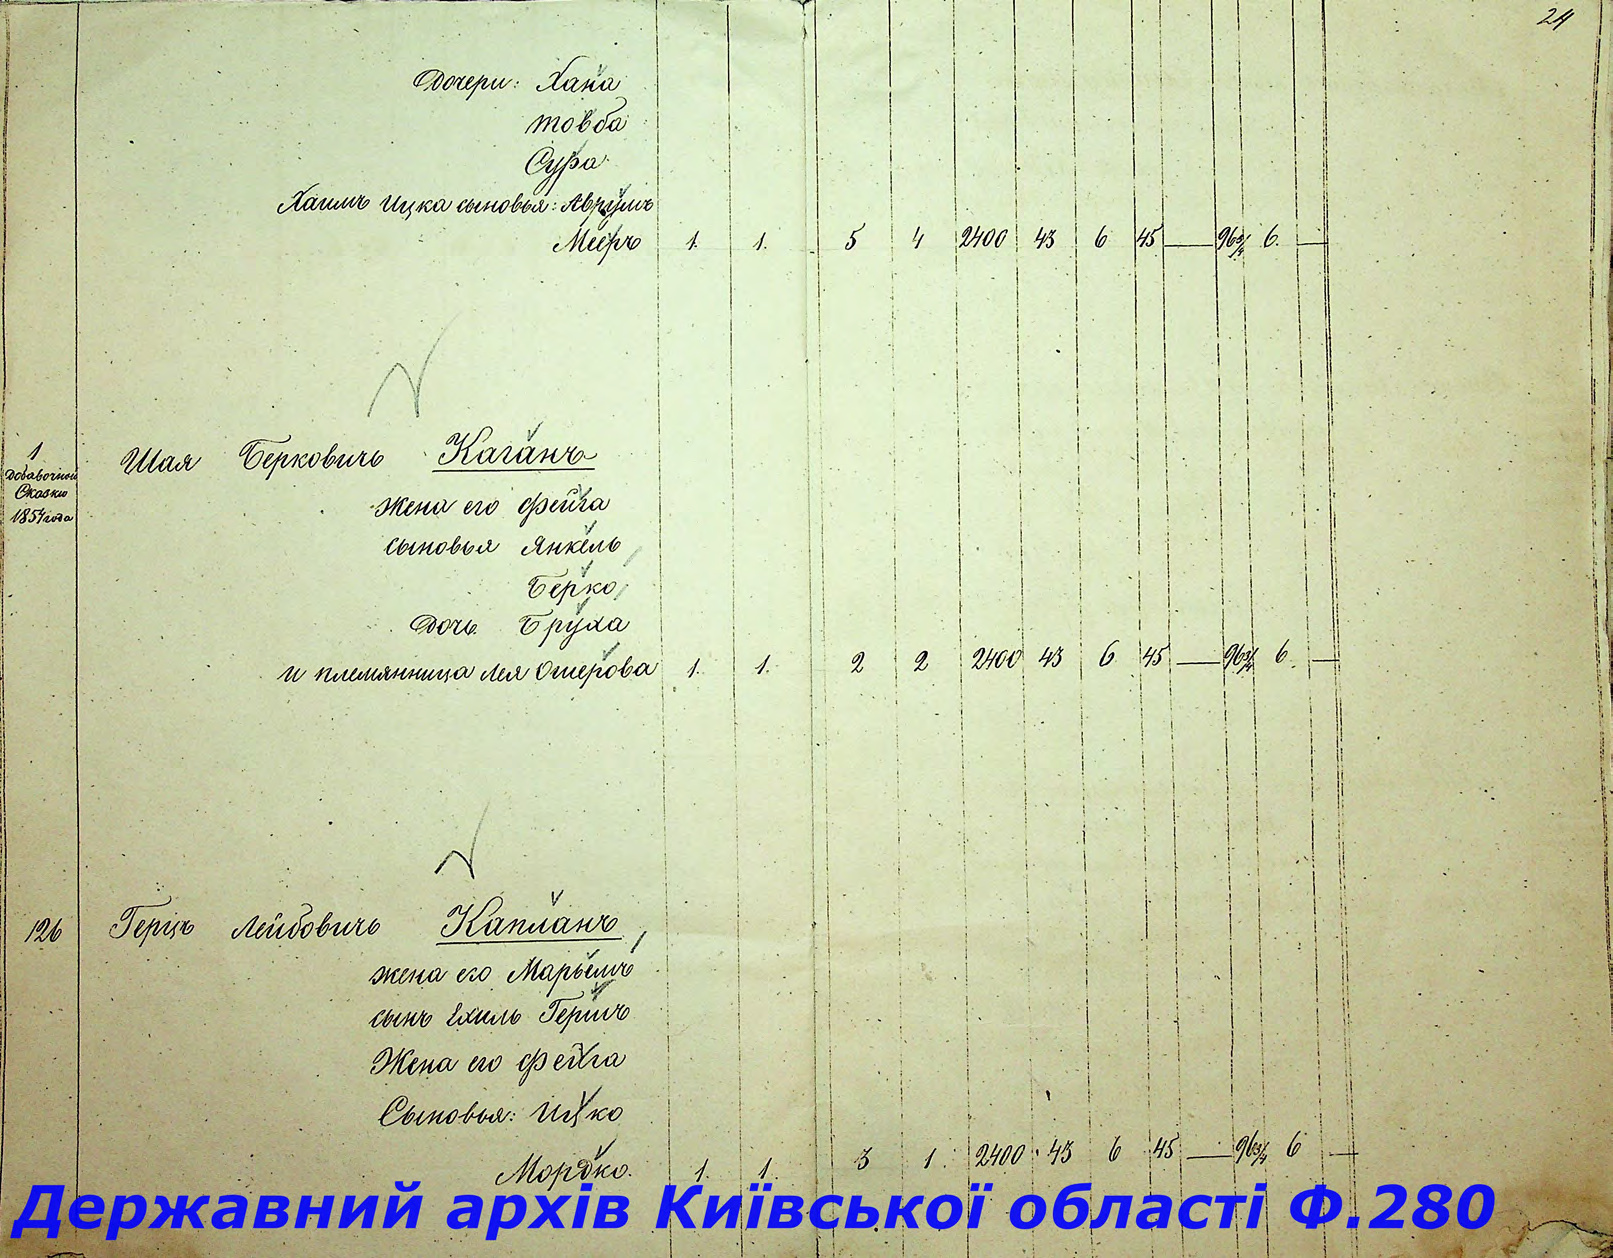 24
Дочери: Хана
Товба
Сура
Хаимъ Ицка сыновья: Аврумъ
Мееръ 1. 1. 5 4 2400 43 6 45 — 96 3/4 6. —
1 Добавочной Сказки 1857 года
Шая Берковичъ Каганъ
Жена его Фейга
сыновья Янкель
Берко
Дочь Бруха
и племянница Лея Ошерова 1. 1. 2 2 2400 43 6 45 — 96 3/4 6. —
126 Герцъ Лейбовичъ Капланъ
жена его Марьемъ
сынъ Ехиль Гершъ
Жена его Фейга
Сыновья: Ицко
Мордко. 1. 1. 3 1. 2400 43 6 45 — 96 3/4 6 —
Державний архів Київської області Ф.280